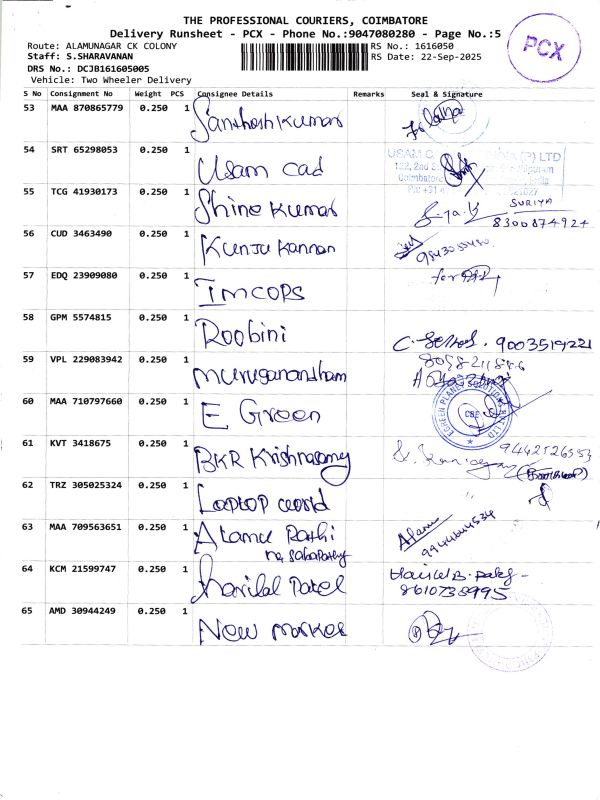 THE PROFESSIONAL COURIERS, COIMBATORE
Delivery Runsheet - PCX - Phone No.:9047080280 - Page No.:5
PCX
Route: ALAMUNAGAR CK COLONY
RS No.: 1616050
Staff: S.SHARAVANAN
RS Date: 22-Sep-2025
DRS No.: DCJB161605005
Vehicle: Two Wheeler Delivery
S No Consignment No Weight PCS Consignee Details Remarks Seal & Signature
53 MAA 870865779 0.250 1 Santhosh Kumar
54 SRT 65298053 0.250 1 Usam Cad
USAM (P) LTD
55 TCG 41930173 0.250 1 Shine Kumar
SURIYA
8300874924
56 CUD 3463490 0.250 1 Kunju Kannan
57 EDQ 23909080 0.250 1 Imcops
for
58 GPM 5574815 0.250 1 Roobini
9003519221
59 VPL 229083942 0.250 1 Muruganandham
60 MAA 710797660 0.250 1 E Green
EGREEN PLANET SOLUTIONS PVT LTD
CBE
61 KVT 3418675 0.250 1 BKR Krishnasamy
62 TRZ 305025324 0.250 1 Laptop world
63 MAA 709563651 0.250 1 Alamu Pathi
Alamu
64 KCM 21599747 0.250 1 Harilal Patel
8610738995
65 AMD 30944249 0.250 1 New Market